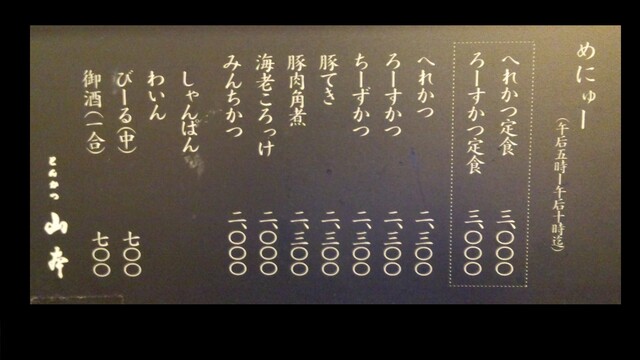 めにゅー
(午后五時ー午后十時迄)
へれかつ定食 三、〇〇〇
ろーすかつ定食 三、〇〇〇
へれかつ 二、三〇〇
ろーすかつ 二、三〇〇
ちーずかつ 二、三〇〇
豚てき 二、三〇〇
豚肉角煮 二、三〇〇
海老ころっけ 二、〇〇〇
みんちかつ 二、〇〇〇
しゃんぱん
わいん
びーる(中) 七〇〇
御酒(一合) 七〇〇
とんかつ 山本